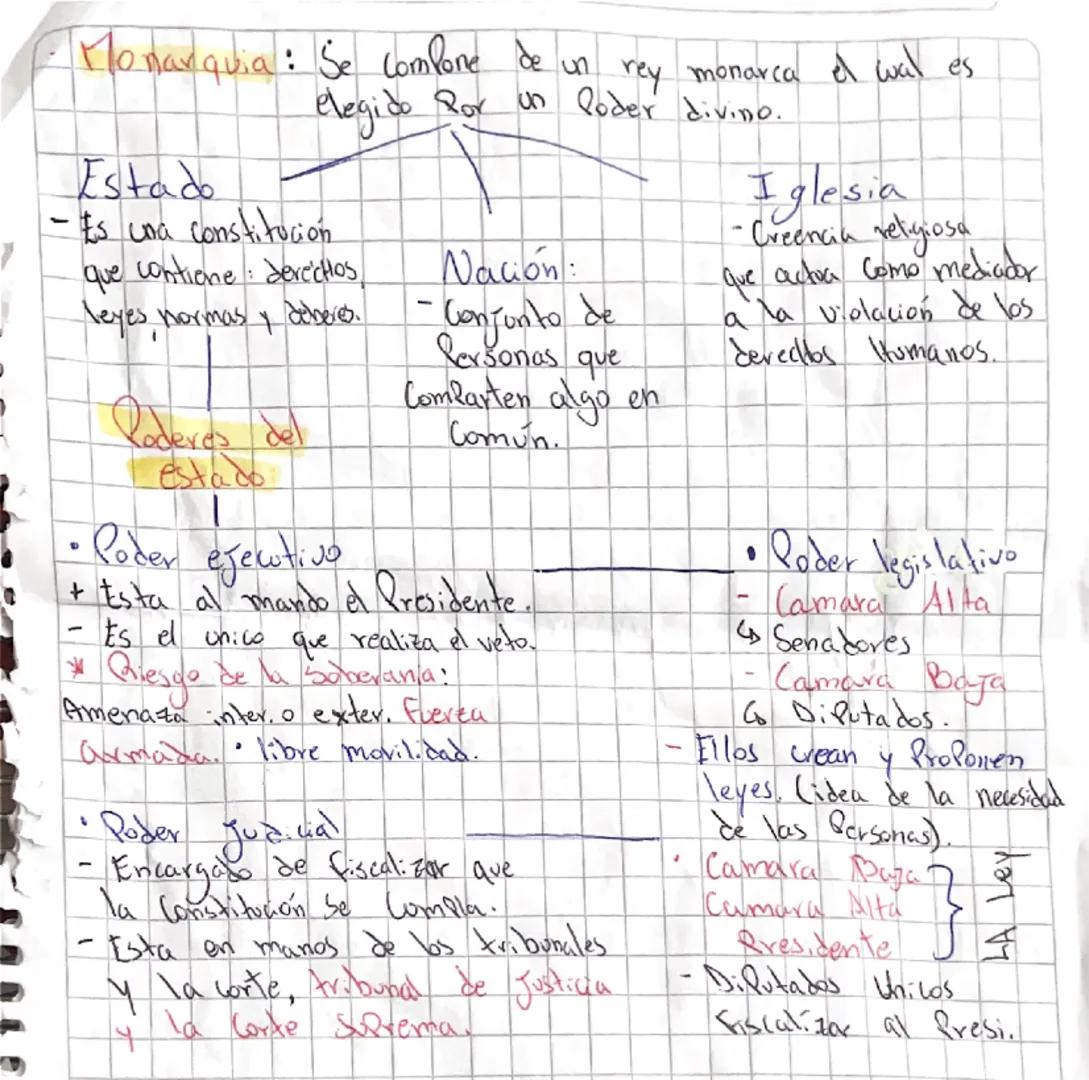 Monarquia: Se compone de un rey monarca el cual es
elegido por un Poder divino.
Estado
- Es una constitución
que contiene: derechos,
leyes, normas y deberes.
Nación:
- Conjunto de
Personas que
comparten algo en
común.
Iglesia
- Creencia religiosa
que actua como mediador
a la violación de los
derechos Humanos.
Poderes del
estado
• Poder ejecutivo
+ Esta al mando el Presidente.
- Es el unico que realiza el veto.
* Riesgo de la soberania:
Amenaza inter. o exter. Fuerza
armada. • libre movilidad.
• Poder Judicial
- Encargado de fiscalizar que
la constitución se cumpla.
- Esta en manos de los tribunales
y la corte, tribunal de justicia
y la corte suprema.
• Poder legislativo
- Camara Alta
↳ Senadores
- Camara Baja
↳ Diputados.
- Ellos crean y Proponen
leyes. (idea de la necesidad
de las Personas).
• Camara Baja
Camara Alta
Presidente
LA LeY
- Diputados Unicos
Fiscalizar al Presi.